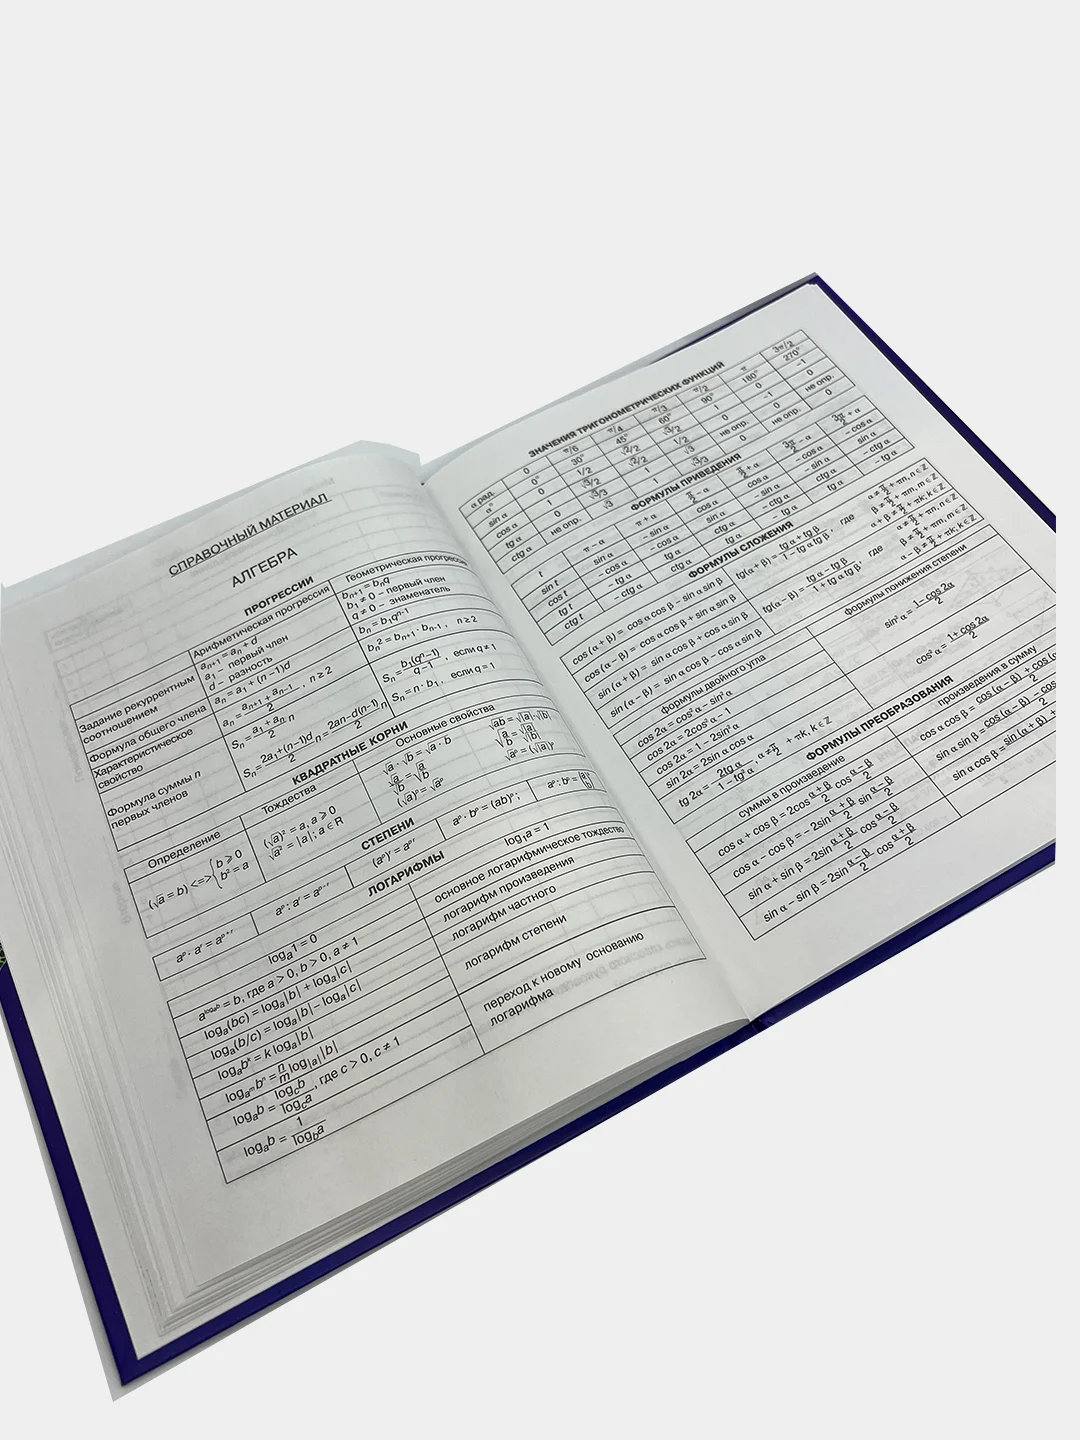 СПРАВОЧНЫЙ МАТЕРИАЛ
АЛГЕБРА
ПРОГРЕССИИ
Арифметическая прогрессия
Геометрическая прогрес
Задание рекуррентным соотношением
aₙ₊₁ = aₙ + d
a₁ – первый член
d – разность
bₙ₊₁ = bₙq
b₁ ≠ 0 – первый член
q ≠ 0 – знаменатель
Формула общего члена
aₙ = a₁ + (n–1)d
bₙ = b₁qⁿ⁻¹
Характеристическое свойство
aₙ = (aₙ₊₁ + aₙ₋₁)/2 , n ≥ 2
bₙ² = bₙ₊₁ · bₙ₋₁ , n ≥ 2
Формула суммы n первых членов
Sₙ = (a₁ + aₙ)/2 n
Sₙ = (2a₁+(n–1)d)/2 n = (2an-d(n-1))/2 n
Sₙ = b₁(qⁿ–1)/(q–1) , если q ≠ 1
Sₙ = n · b₁ , если q = 1
КВАДРАТНЫЕ КОРНИ
Определение
Тождества
Основные свойства
(√a = b) <=> { b ⩾ 0
b² = a
(√a)² = a, a ⩾ 0
√a² = |a|; a ∈ R
√a · √b = √a · b
√a/√b = √(a/b)
√ab = √|a| · √|b|
√(a/b) = √|a|/√|b|
СТЕПЕНИ
(aᵖ)ʳ = aᵖʳ
aᵖ · bᵖ = (ab)ᵖ;
aᵖ : bᵖ = (a/b)
aᵖ · aʳ = aᵖ⁺ʳ
aᵖ : aʳ = aᵖ⁻ʳ
ЛОГАРИФМЫ
logₐ1 = 0
log₁a = 1
a^(logₐb) = b, где a > 0, b > 0, a ≠ 1
основное логарифмическое тождество
logₐ(bc) = logₐ|b| + logₐ|c|
логарифм произведения
logₐ(b/c) = logₐ|b| – logₐ|c|
логарифм частного
logₐbᵏ = k logₐ|b|
logₐᵐbⁿ = n/m log|ₐ||b|
логарифм степени
logₐb = log_c b/log_c a, где c > 0, c ≠ 1
logₐb = 1/log_b a
переход к новому основанию
логарифма
ЗНАЧЕНИЯ ТРИГОНОМЕТРИЧЕСКИХ ФУНКЦИЙ
α рад. 0 π/6 π/4 π/3 π/2 π 3π/2
α° 0° 30° 45° 60° 90° 180° 270°
sin α 0 1/2 √2/2 √3/2 1 0 –1
cos α 1 √3/2 √2/2 1/2 0 –1 0
tg α 0 √3/3 1 √3 не опр. 0 не опр.
ctg α не опр. √3 1 √3/3 0 не опр. 0
ФОРМУЛЫ ПРИВЕДЕНИЯ
t π – α π + α π/2 – α π/2 + α 3π/2 – α 3π/2 + α
sin t sin α – sin α cos α cos α – cos α – cos α
cos t – cos α – cos α sin α – sin α – sin α sin α
tg t – tg α tg α ctg α – ctg α ctg α – ctg α
ctg t – ctg α ctg α tg α – tg α tg α – tg α
ФОРМУЛЫ СЛОЖЕНИЯ
cos (α + β) = cos α cos β – sin α sin β
cos (α – β) = cos α cos β + sin α sin β
sin (α + β) = sin α cos β + cos α sin β
sin (α – β) = sin α cos β – cos α sin β
tg(α + β) = (tg α + tg β)/(1 – tg α tg β) , где
α ≠ π/2 + πn, n ∈ Z
β ≠ π/2 + πm, m ∈ Z
α + β ≠ π/2 + πk, k ∈ Z
tg(α – β) = (tg α – tg β)/(1 + tg α tg β) , где
α ≠ π/2 + πn, n ∈ Z
β ≠ π/2 + πm, m ∈ Z
α – β ≠ π/2 + πk, k ∈ Z
формулы двойного угла
формулы понижения степени
cos 2α = cos² α – sin² α
cos 2α = 2cos² α – 1
cos 2α = 1 – 2sin² α
sin 2α = 2sin α cos α
tg 2α = 2tg α/(1 – tg² α) , α ≠ π/2 + πk, k ∈ Z
sin² α = (1 – cos 2α)/2
cos² α = (1 + cos 2α)/2
ФОРМУЛЫ ПРЕОБРАЗОВАНИЯ
суммы в произведение
произведения в сумму
cos α + cos β = 2cos (α + β)/2 cos (α – β)/2
cos α – cos β = – 2sin (α + β)/2 sin (α – β)/2
sin α + sin β = 2sin (α + β)/2 cos (α – β)/2
sin α – sin β = 2sin (α – β)/2 cos (α + β)/2
cos α cos β = cos (α – β) + cos (α
sin α sin β = cos (α – β) – cos
sin α cos β = sin (α + β) +